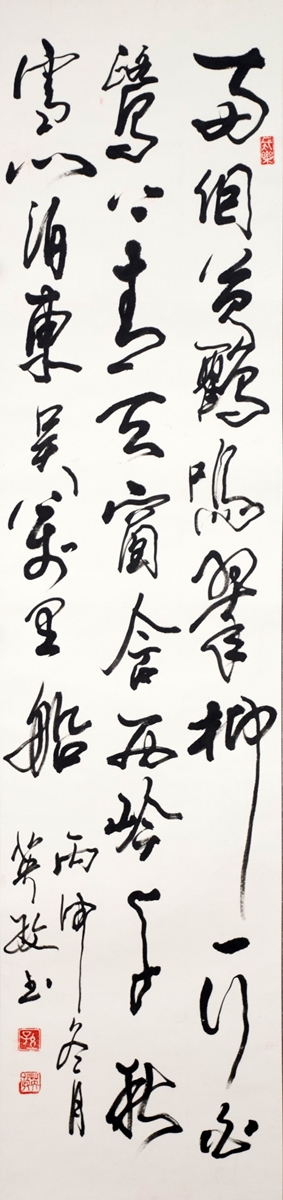 两個黄鸝鳴翠柳一行白
鷺上青天窗含西岭千秋
雪门泊東吴萬里船
丙申冬月
英书